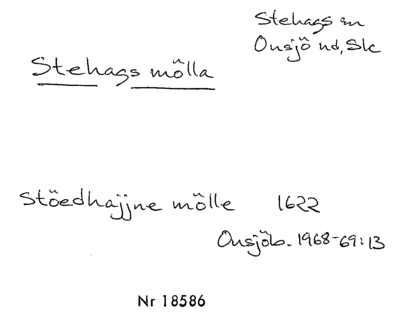 Stehags sn
Onsjö hd, Sk
Stehags mölla
Stöedhajjne mölle 1622
Onsjöb. 1968-69:13
Nr 18586